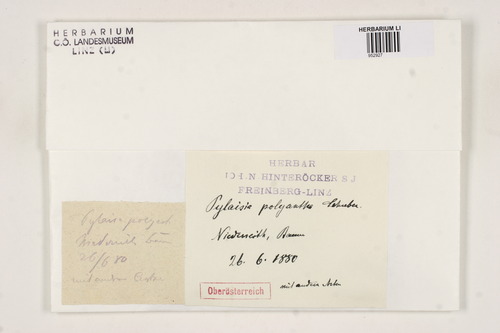 HERBARIUM
O.Ö. LANDESMUSEUM
LINZ (LI)
HERBARIUM LI
952927
HERBAR
JOH. N. HINTERÖCKER S.J.
FREINBERG-LINZ
Pylaisia polyantha Schreber.
Niederreith, Baum
26. 6. 1880
mit andern Arten
Oberösterreich
Pylaisia polyanth
Niederreith Baum
26/6 80
mit andern Arten